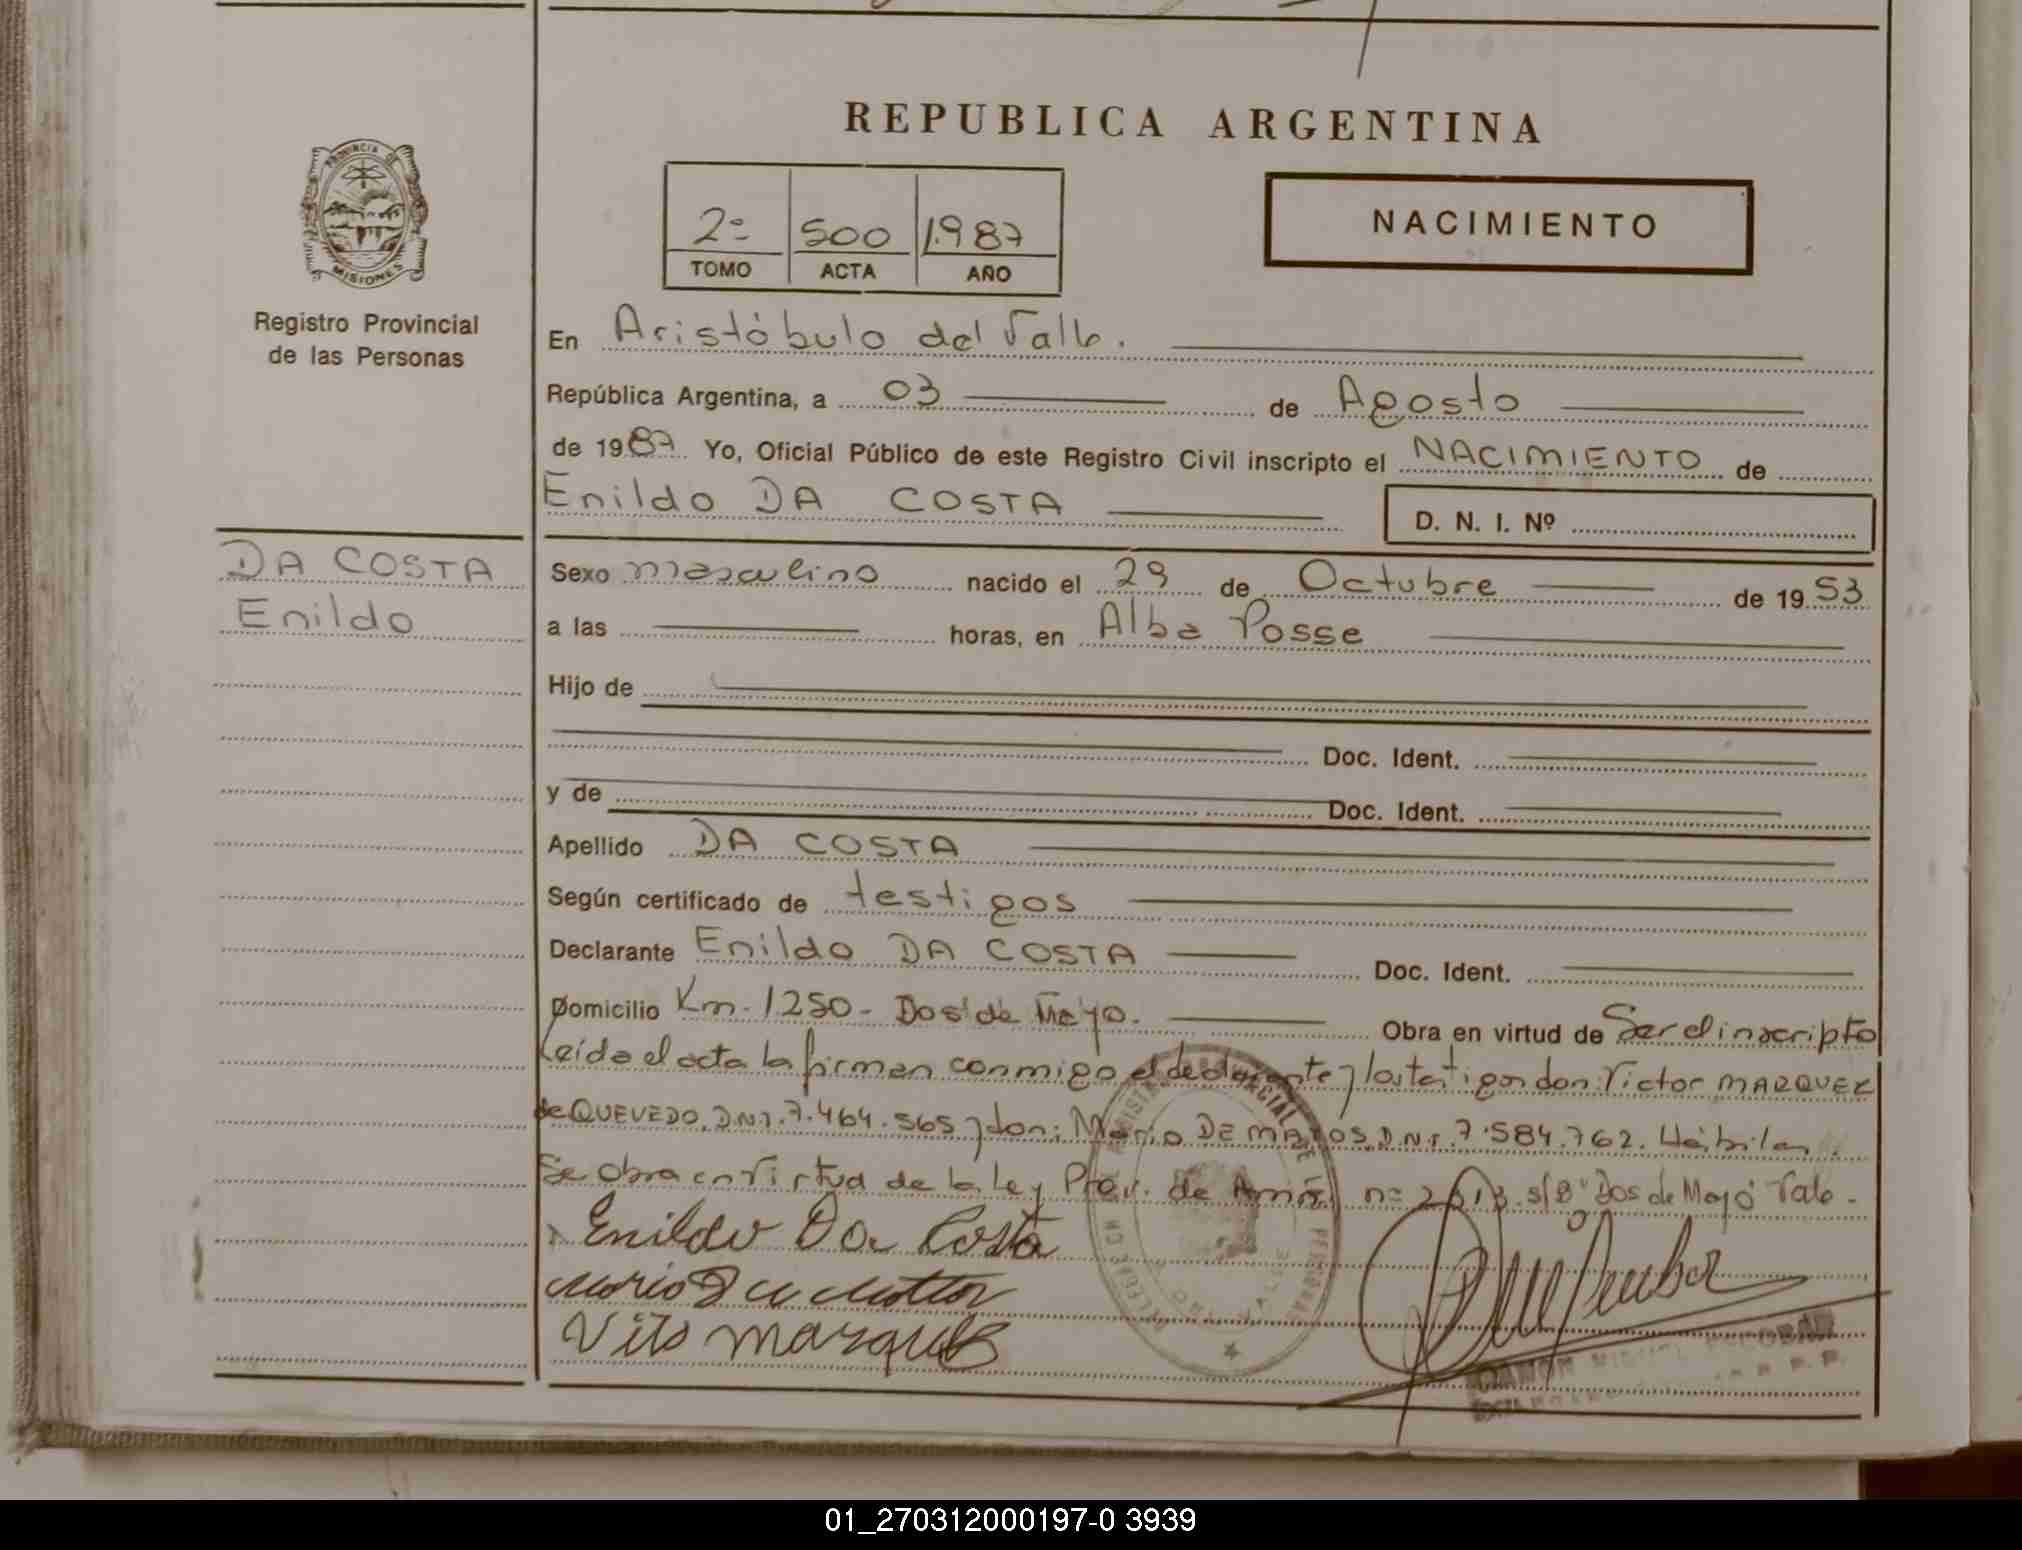 REPUBLICA ARGENTINA
PROVINCIA DE MISIONES
Registro Provincial
de las Personas
2º 500 1.987
TOMO ACTA AÑO
NACIMIENTO
En Aristóbulo del Valle.
República Argentina, a 03 de Agosto
de 1987 Yo, Oficial Público de este Registro Civil inscripto el NACIMIENTO de
Enildo DA COSTA D. N. I. Nº
DA COSTA
Enildo
Sexo masculino nacido el 29 de Octubre de 1953
a las horas, en Alba Posse
Hijo de
Doc. Ident.
y de Doc. Ident.
Apellido DA COSTA
Según certificado de testigos
Declarante Enildo DA COSTA Doc. Ident.
Domicilio Km. 1250 - Dos de Mayo. Obra en virtud de Ser el inscripto
Leída el acta la firman conmigo el declarante y los testigos don: Victor MARQUEZ
de QUEVEDO, D.N.I. 7.464.565 y don: Mario DE MATOS, D.N.I. 7.584.762. Hábiles.
Se obra en Virtud de la Ley Prov. de n= s/B° Dos de Mayo Vale -
Enildo Da Costa
Mario De
Vito Marques
RAMON MIGUEL ESCOBAR
01_270312000197-0 3939